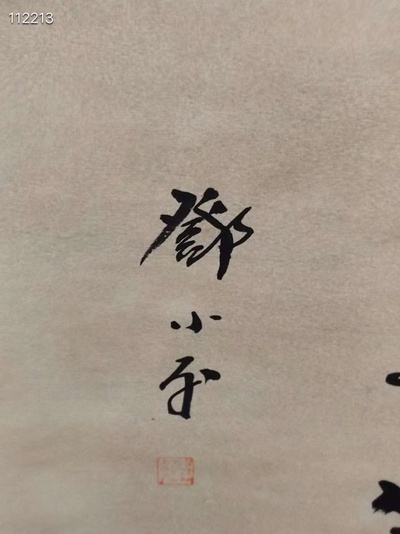 112213
鄧小平